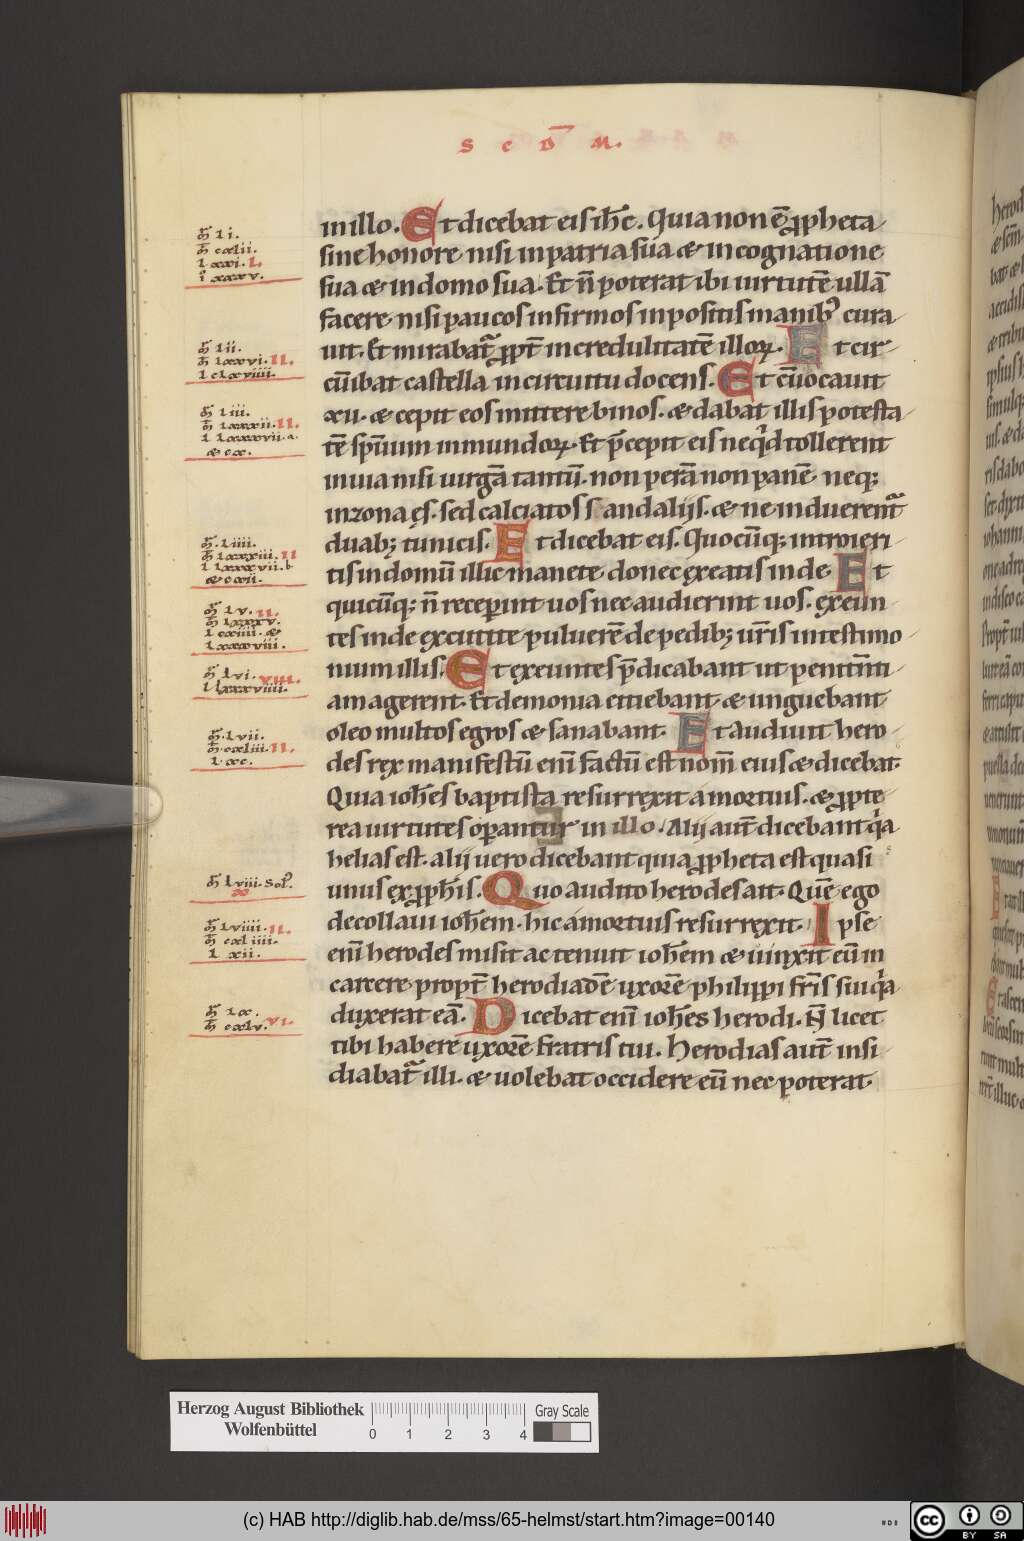 S E C D̅ M.
in illo. Et dicebat eis ih̅c. Quia non e̅ ꝓpheta
sine honore nisi in patria sua & in cognatione
sua & in domo sua. Et n̅ poterat ibi uirtute̅ ulla̅
facere nisi paucos infirmos inpositis manibꝰ cura
uit. Et mirabat᷑ ꝓpt̅ incredulitate̅ illoꝝ. Et cir
cu̅ibat castella in circuitu docens. Et c̅uocauit
xii. & cepit eos mittere binos. & dabat illis potesta
te̅ sp̅uum inmundoꝝ. Et p̅cepit eis ne qͥd tollerent
in uia nisi uirga̅ tantu̅. non pera̅ non pane̅ neq;
in zona ęs. sed calciatos sandalijs. & ne induerent᷑
duab; tunicis. Et dicebat eis. Quocu̅q; introieri
tis in domu̅ illic manete donec ęxeatis inde. Et
quicu̅q; n̅ receperint uos nec audierint uos. ęxeun
tes inde ęxcutite puluere̅ de pedib; ur̅is in testimo
nium illis. Et ęxeuntes p̅dicabant ut penitn̅ti
am agerent. Et demonia eitiebant & unguebant
oleo multos egros & sanabant. Et audiuit hero
des ręx manifestu̅ eni̅ factu̅ est nom̅ eius & dicebat.
Quia ioh̅es baptista resurręxit a mortuis. & ꝓpte
rea uirtutes operantur in illo. Alij aut̅ dicebant qͥa
helias est. alij uero dicebant quia ꝓpheta est quasi
unus ęx ꝓph̅is. Quo audito herodes ait. Que̅ ego
decollaui ioh̅em. hic a mortuis resurręxit. Ipse
eni̅ herodes misit ac tenuit ioh̅em & uinxit eu̅ in
carcere propt̅ herodiade̅ ųxore̅ philippi fr̅is sui qͥa
duxerat ea̅. Dicebat eni̅ ioh̅es herodi. N̅ licet
tibi habere ųxore̅ fratris tui. Herodias aut̅ insi
diabat᷑ illi. & uolebat occidere eu̅ nec poterat.
m̅ li.
m̅ cxlii.
l xxi. I.
i̊ xxxv.
m̅ lii.
m̅ lxxvi. II.
l clxviiii.
m̅ liii.
m̅ lxxxii. II.
l lxxxvii. a.
& cx.
m̅. liiii.
m̅ lxxxiii. II
l lxxxvii. b
& cxii.
m̅ lv. II.
m̅ lxxxv.
l cxiiii. &
lxxxviii.
m̅ lvi. VIII.
l lxxxviiii.
m̅ lvii.
m̅ cxliii. II.
l xc.
m̅ lviii. Solꝰ.
X
m̅ lviiii. II.
m̅ cxliiii.
l xii.
m̅ lx.
m̅ cxlv. VI.
Herzog August Bibliothek
Wolfenbüttel
0 1 2 3 4
Gray Scale
(c) HAB http://diglib.hab.de/mss/65-helmst/start.htm?image=00140
cc BY SA